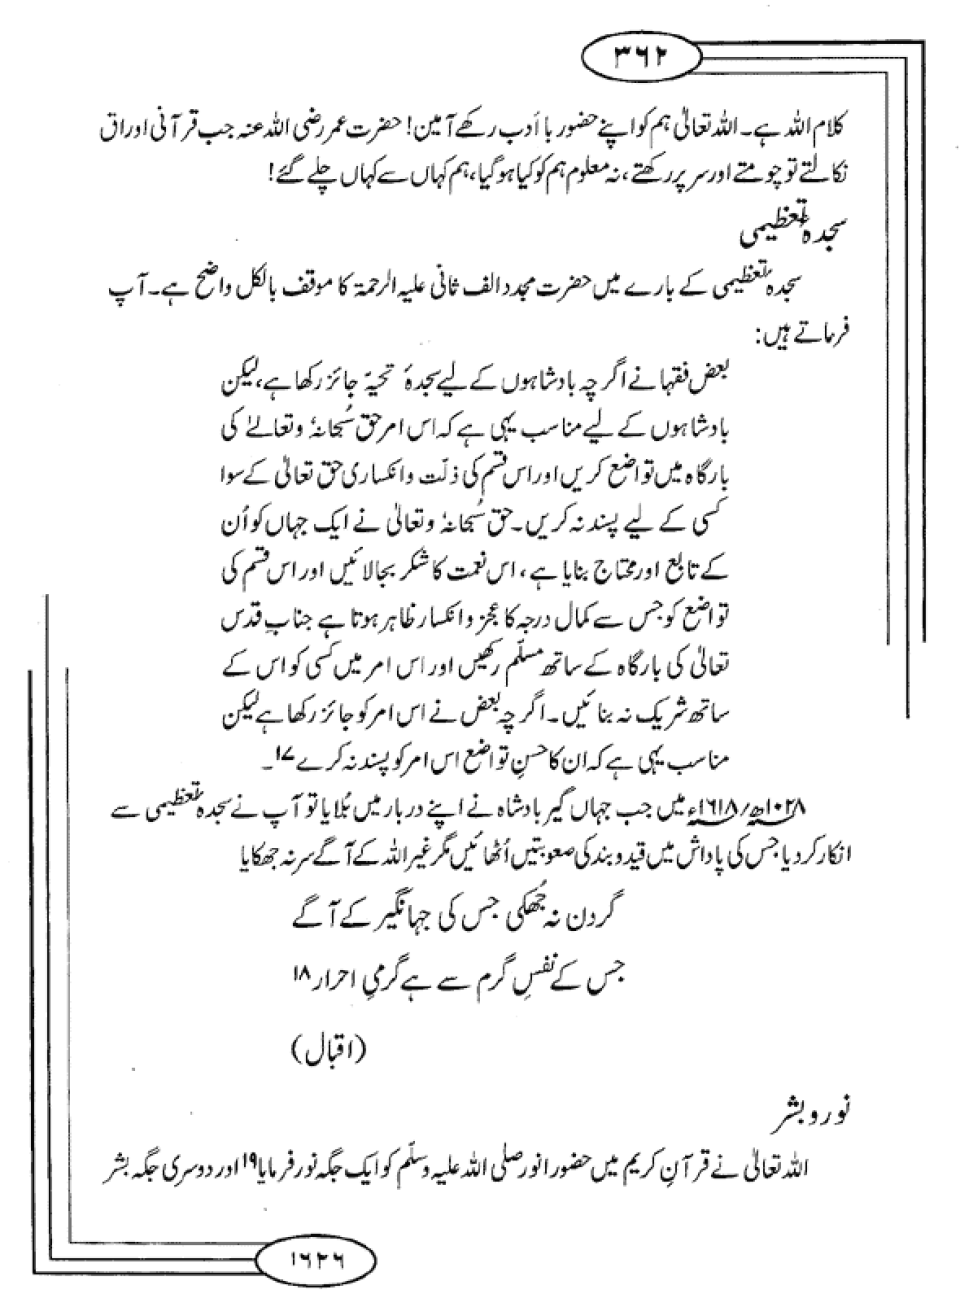 ۳۶۲
کلام اللہ ہے۔ اللہ تعالیٰ ہم کو اپنے حضور با اَدب رکھے آمین! حضرت عمر رضی اللہ عنہ جب قرآنی اوراق
نکالتے تو چومتے اور سر پر رکھتے، نہ معلوم ہم کو کیا ہو گیا، ہم کہاں سے کہاں چلے گئے!
سجدہ تعظیمی
سجدہ تعظیمی کے بارے میں حضرت مجدد الف ثانی علیہ الرحمۃ کا موقف بالکل واضح ہے۔ آپ
فرماتے ہیں:
بعض فقہا نے اگرچہ بادشاہوں کے لیے سجدۂ تحیۃ جائز رکھا ہے، لیکن
بادشاہوں کے لیے مناسب یہی ہے کہ اس امر حق سُبحانہٗ وتعالےٰ کی
بارگاہ میں تواضع کریں اور اس قسم کی ذلّت و انکساری حق تعالیٰ کے سوا
کسی کے لیے پسند نہ کریں۔ حق سُبحانہٗ وتعالیٰ نے ایک جہاں کو اُن
کے تابع اور محتاج بنایا ہے، اس نعمت کا شکر بجا لائیں اور اس قسم کی
تواضع کو جس سے کمال درجہ کا عجز و انکسار ظاہر ہوتا ہے جنابِ قدس
تعالیٰ کی بارگاہ کے ساتھ مسلّم رکھیں اور اس امر میں کسی کو اس کے
ساتھ شریک نہ بنائیں۔ اگرچہ بعض نے اس امر کو جائز رکھا ہے لیکن
مناسب یہی ہے کہ ان کا حسنِ تواضع اس امر کو پسند نہ کرے ۱۷۔
۱۰۲۸ھ/۱۶۱۸ء میں جب جہاں گیر بادشاہ نے اپنے دربار میں بُلایا تو آپ نے سجدہ تعظیمی سے
انکار کردیا جس کی پاداش میں قید و بند کی صعوبتیں اُٹھائیں مگر غیر اللہ کے آگے سر نہ جھکایا
گردن نہ جُھکی جس کی جہانگیر کے آگے
جس کے نفسِ گرم سے ہے گرمیِ احرار ۱۸
(اقبال)
نور و بشر
اللہ تعالیٰ نے قرآنِ کریم میں حضور انور صلی اللہ علیہ وسلّم کو ایک جگہ نور فرمایا ۱۹ اور دوسری جگہ بشر
۱۶۲۶